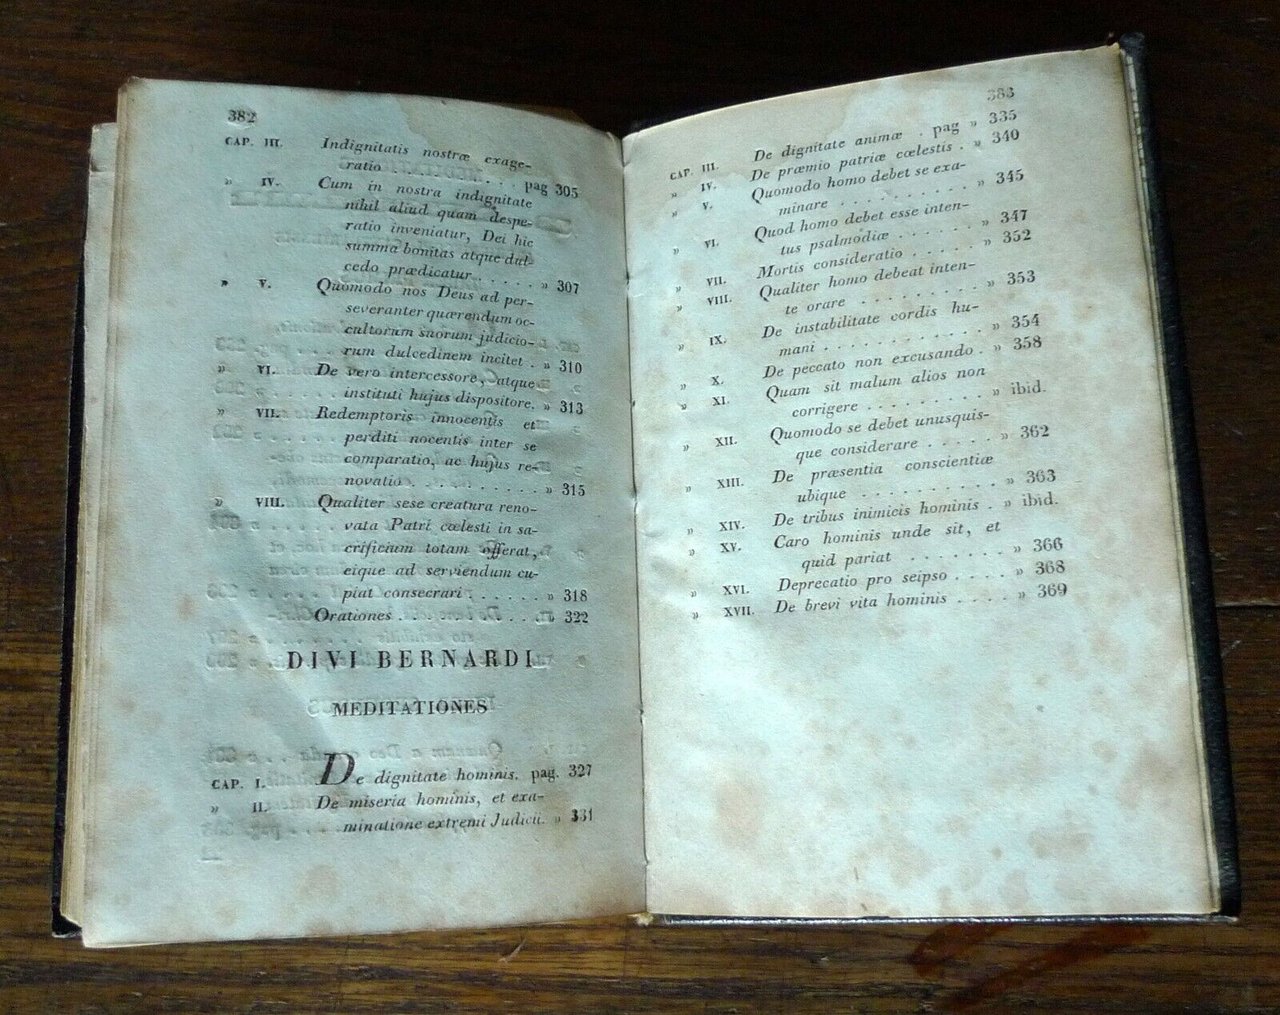 382
CAP. III. Indignitatis nostræ exage-
ratio . . . pag 305
» IV. Cum in nostra indignitate
nihil aliud quam despe-
ratio inveniatur, Dei hic
summa bonitas atque dul-
cedo prædicatur . . . . . » 307
» V. Quomodo nos Deus ad per-
severanter quærendum oc-
cultorum suorum judicio-
rum dulcedinem incitet . » 310
» VI. De vero intercessore, atque
instituti hujus dispositore. » 313
» VII. Redemptoris innocentis et
perditi nocentis inter se
comparatio, ac hujus re-
novatio . . . . . . . . . . » 315
» VIII. Qualiter sese creatura reno-
vata Patri cœlesti in sa-
crificium totam offerat,
eique ad serviendum cu-
piat consecrari . . . . . . » 318
Orationes . . . . . . . . . . » 322
DIVI BERNARDI
MEDITATIONES
CAP. I. De dignitate hominis. pag. 327
» II. De miseria hominis, et exa-
minatione extremi Judicii. » 331
383
CAP. III. De dignitate animæ . pag » 335
» IV. De præmio patriæ cœlestis . » 340
» V. Quomodo homo debet se exa-
minare . . . . . . . . . » 345
» VI. Quod homo debet esse inten-
tus psalmodiæ . . . . . . » 347
» VII. Mortis consideratio . . . . » 352
» VIII. Qualiter homo debeat inten-
te orare . . . . . . . . . » 353
» IX. De instabilitate cordis hu-
mani . . . . . . . . . . . » 354
» X. De peccato non excusando . » 358
» XI. Quam sit malum alios non
corrigere . . . . . . . . » ibid.
» XII. Quomodo se debet unusquis-
que considerare . . . . . » 362
» XIII. De præsentia conscientiæ
ubique . . . . . . . . . . » 363
» XIV. De tribus inimicis hominis . » ibid.
» XV. Caro hominis unde sit, et
quid pariat . . . . . . . » 366
» XVI. Deprecatio pro seipso . . . . » 368
» XVII. De brevi vita hominis . . . . » 369